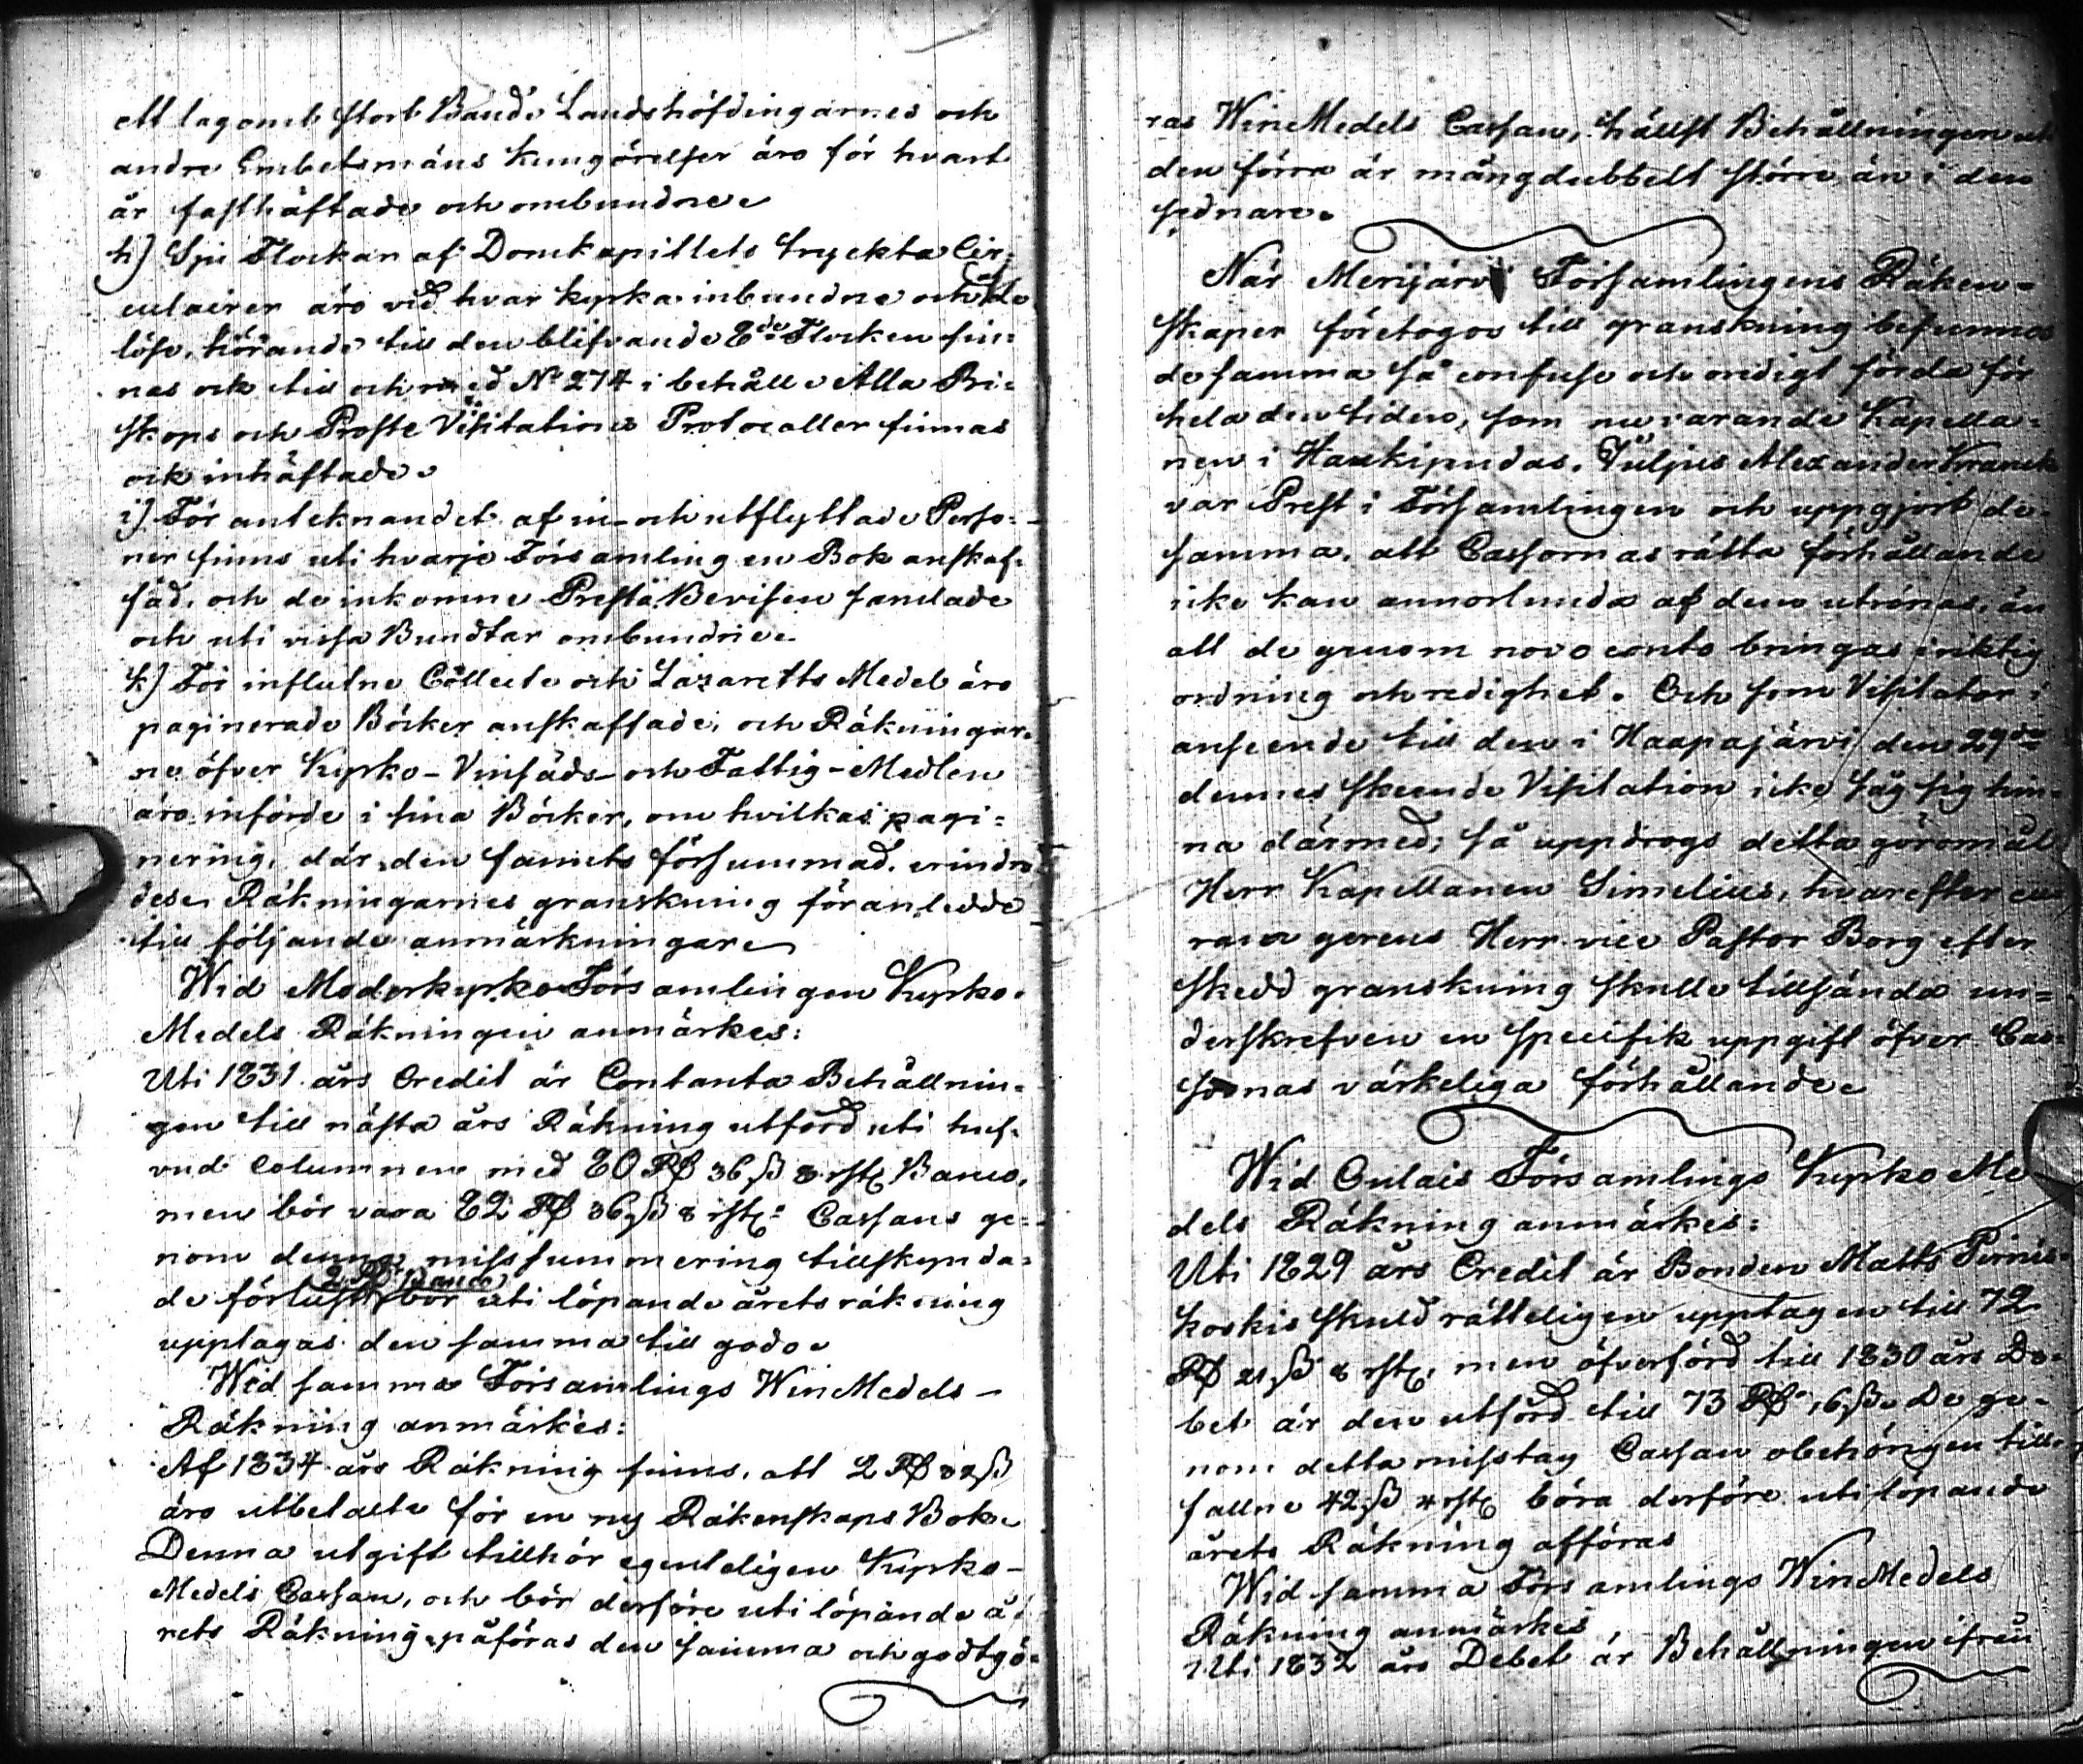 ett lagomt stort Band. Landshöfdingarnes och
andre Embetsmäns kungörelser äro för hvart
år fasthäftade och ombundne.
h) Sju Flockar af Domkapitlets tryckta Cir-
culairer äro vid hvar kyrka inbundne och de
löse, hörande till den blifvande 8de Flocken fin-
nas ock till och med No 274 i behåll. Alla Bi-
skops och Proste Visitations Protocoller finnas
ock inhäftade.
i) För anteknandet af in- och utflyttade Perso-
ner finns uti hvarje Församling en Bok anskaf-
fad, och de inkomne Prestä Bevisen samlade
och uti vissa Bundtar ombundne.
k) För influtne Collecte och Lazaretts Medel äro
paginerade Böcker anskaffade, och Räkningar-
ne öfver Kyrko- Vinsäds- och Fattig-Medlen
äro införde i sina Böcker, om hvilkas pagi-
nering, där den samts försummad, erindra-
des. Räkningarnes granskning föranledde
till följande anmärkningar.
Wid Moderkyrko Församlingen Kyrko-
Medels Räkningen anmärkes:
Uti 1831 års Credit är Contanta Behållnin-
gen till nästa års Räkning utförd uti huf-
vud columnen med 80 Rß 36 ß 8 rst. Banco,
men bör vara 82 Rß 36 ß 8 rst. Cassans ge-
nom denna missummering tillskynda-
2 Rß Banco
de förlust bör uti löpande årets räkning
upptagas den samma till godo.
Wid samma Församlings WinMedels-
Räkning anmärkes:
Af 1834 års Räkning finns, att 2 Rß 32 ß
äro utbetalte för en ny Räkenskaps Bok.
Denna utgift tillhör egenteligen Kyrko-
Medels Cassan, och bör derföre uti löpande å-
rets Räkning påföras den samma och godtgö-
ras WinMedels Cassan, hällst Behållningen uti
den förra är mångdubbelt större, än i den
sednare.
När Merijärvi Församlingens Räken-
skaper företogos till granskning befunnos
de samma så confuse och oredigt förda för
hela den tiden, som nuvarande Kapella-
nen i Haukipudas, Julius Alexander Kranck
var Prest i Församlingen och uppgjort de-
samma, att Cassornas rätta förhållande
icke kan annorlunda af dem utrönas, än
att de genom novo conto bringas i riktig
ordning och redighet. Och som Visitator i
anseende till den i Haapajärvi den 29de
dennes skeende Visitation icke såg sig hin-
na därmed; så uppdrogs detta göromål
Herr Kapellanen Simelius, hvarefter cu-
ram gerens Herr vice Pastor Borg efter
skedd granskning skulle tillsända un-
derskrefven en specifik uppgift öfver Cas-
sornas värkeliga förhållande.
Wid Oulais Församlings Kyrko Me
dels Räkning anmärkes:
Uti 1829 års Credit är Bonden Matts Pirnes-
koskis skuld rätteligen upptagen till 72
Rß 21 ß 8 rst. men öfverförd till 1830 års De-
bet är den utförd till 73 Rß 16 ß. De ge-
nom detta misstag Cassan obehörigen till-
fallne 42 ß 4 rst. böra derföre uti löpande
årets Räkning afföras
Wid samma Församlings WinMedels
Räkning anmärkes
Uti 1832 års Debet är Behållningen ifrån